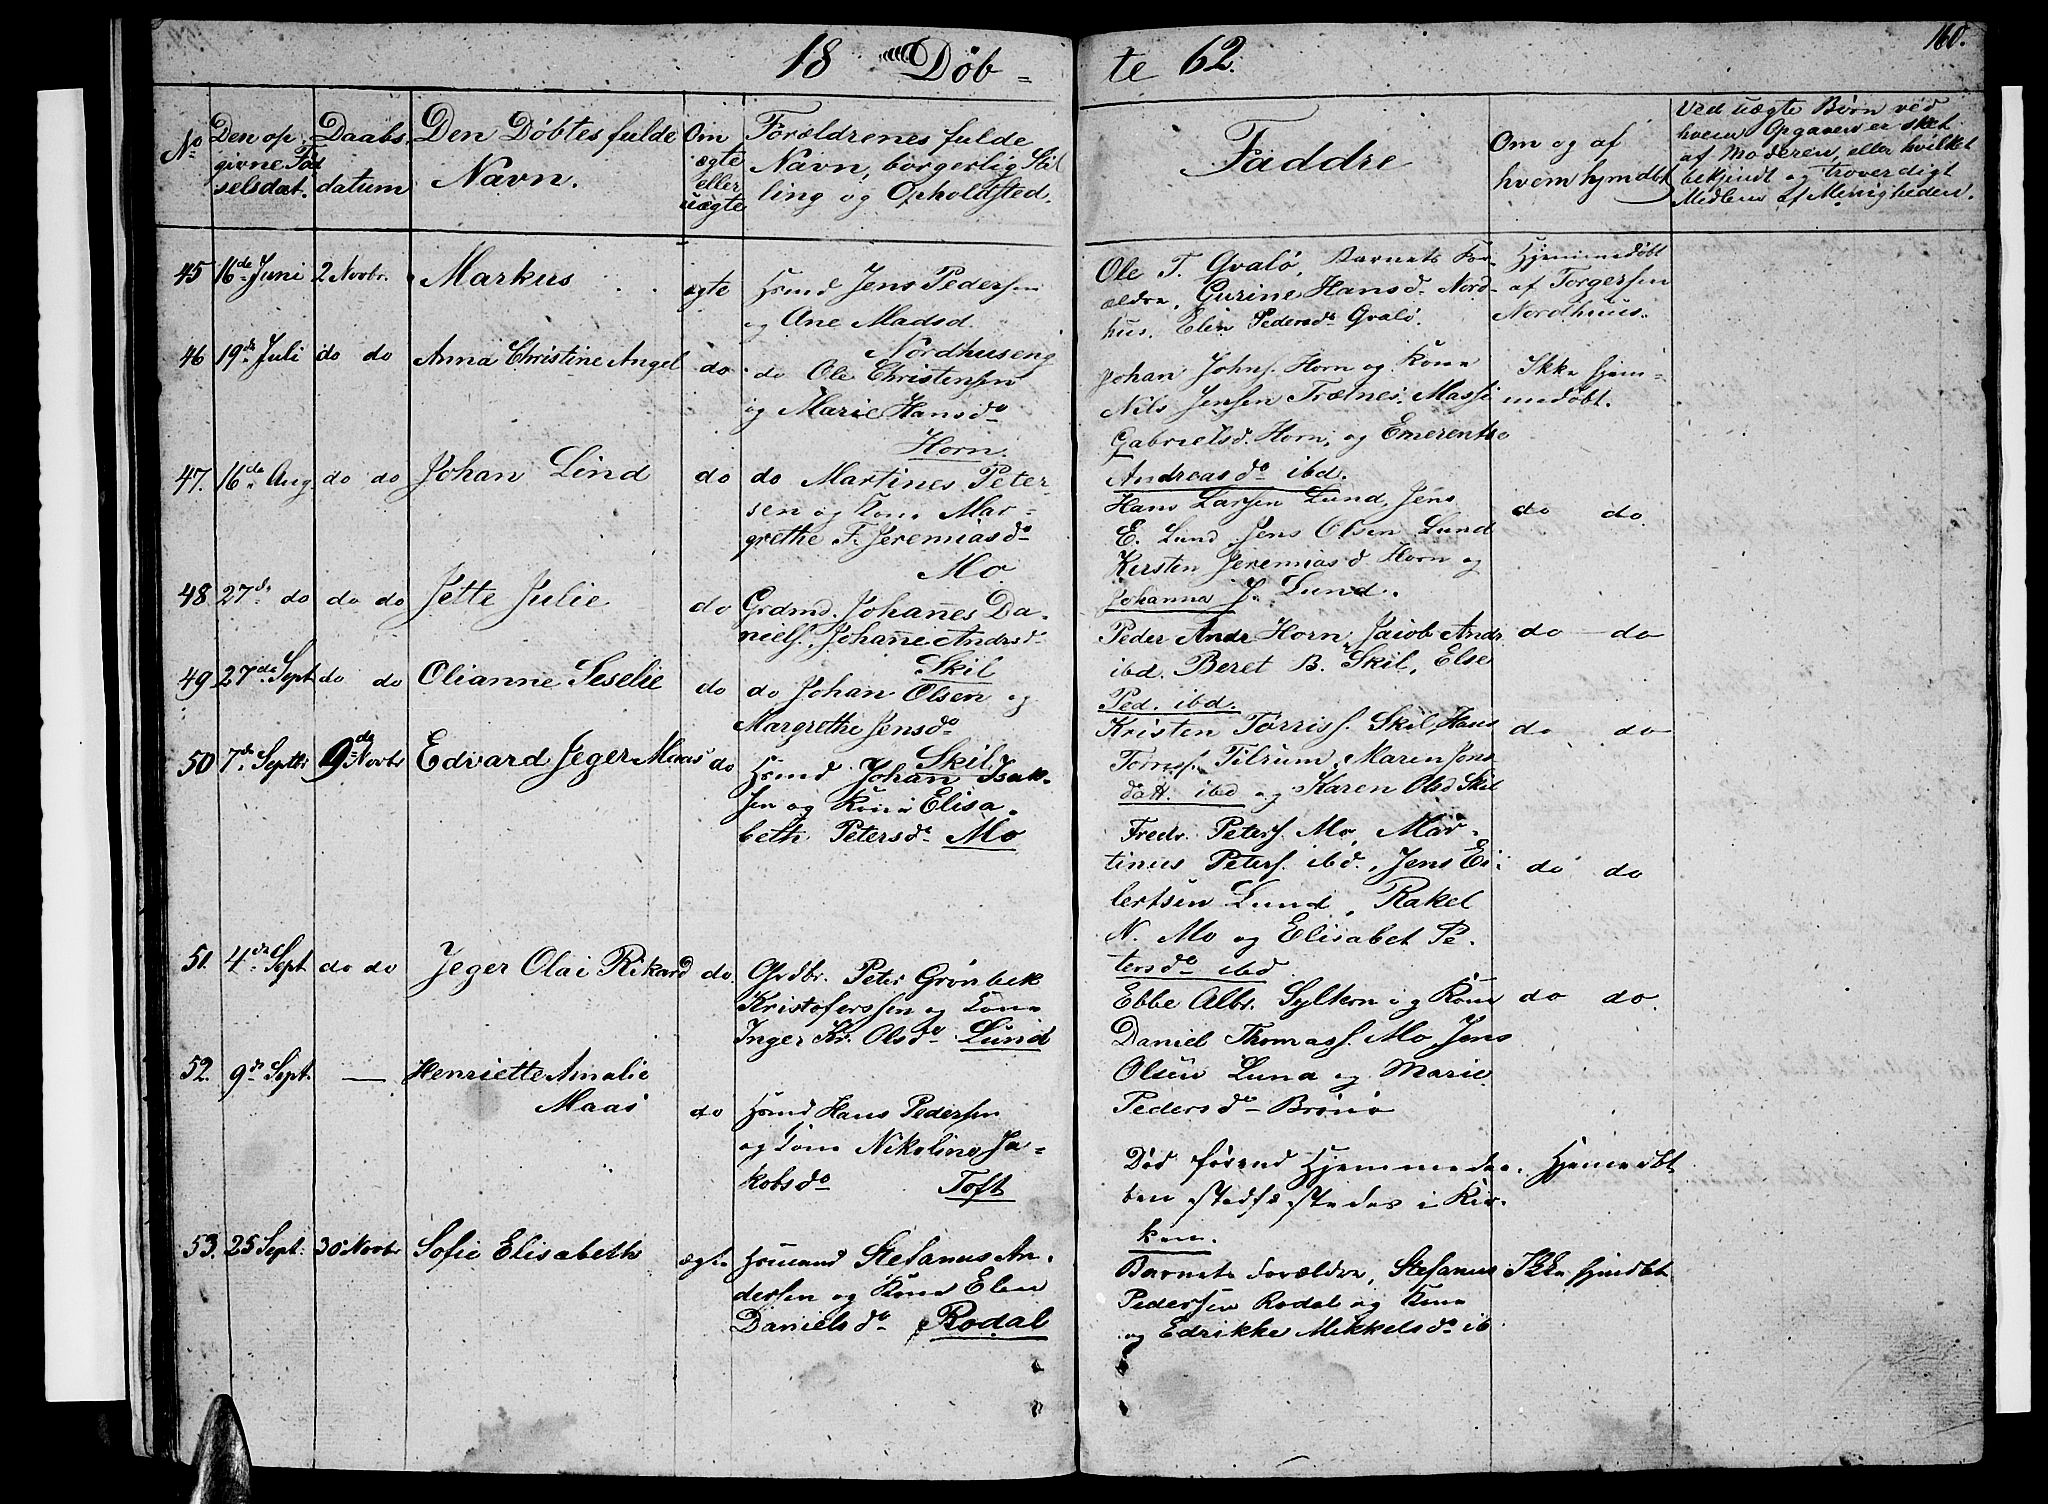 160.
18 Døb-
te 62.
No
Den op
givne Fød
selsdat.
Daabs
datum
Den Døbtes fulde
Navn.
Om
ægte
eller
uægte
Forældrenes fulde
Navn, borgerlig Stil
ling og Opholdsted.
Faddre
Om og af
hvem hjmdbt
Ved uægte Børn ved
hvem Opgaven er sket
af Moderen, eller hvilket
bekjendt og troverdigt
Medlem af Menigheden.
45 16de Juni 2 Novbr. Markus ægte Hsmd Jens Pedersen
og Ane Madsd.
Nordhuseng
Ole T. Gvalø, Barnets For-
ældre, Gurine Hansd. Nord-
hus, Elin Pedersd. Gvalø.
Hjemmedøbt
af Torgersen
Nordhuus.
46 19de Juli do do Anna Christine Angel do do Ole Christensen
og Marie Hansd.
Horn.
Johan Johns. Horn og Kone
Nils Jensen Trælnes, Massi
Gabrielsd. Horn, og Emerents
Andreasd. ibd.
Ikke hjem-
medøbt.
47. 16de Aug. do do Johan Lind do do Martines Peter-
sen og Kone Mar-
grethe F. Jeremiasd.
Mo
Hans Larsen Lund, Jens
E. Lund, Jens Olsen Lund
Kirsten Jeremiasd Horn og
Johanna J. Lund.
do do.
48 27de do do do Jette Julie do Grdmd. Johannes Da-
niels. Johanne Andrsd.
Skil
Peder Andr Horn, Jacob Andr.
ibd. Beret B. Skil, Else
Ped. ibd.
do do
49 27de Sept do do Olianne Seselie do do Johan Olsen og
Margrethe Jensd.
Skil
Kristen Torriss. Skil, Hans
Torris. Tilrum, Maren Jens
datt. ibd og Karen Olsd Skil
do do
50 7de Septbr 9de Novbr Edvard Jeger Maas do Hsmd Johan Isak-
sen og Kone Elisa-
beth Petersd. Mo
Fredr. Peters. Mo, Mar-
tinus Peters. ibd., Jens Ei-
lertsen Lund, Rakel
N. Mo og Elisabet Pe-
tersd. ibd
do do
51. 4de Sept do do Jeger Olai Rikard do. Grdbr. Peter Grønbek
Kristoferssen og Kone
Inger Kr. Olsd. Lund
Ebbe Albr. Sylten og Kone
Daniel Thomass. Mo, Jens
Olsen Lund og Marie
Pedersd. Brønø
do do.
52. 9de Sept. — Henriette Amalie
Maas do Hsmd Hans Pedersen
og Kone Nikoline Ja-
kobsd. Toft
Død førend Hjemmedaa-
ben stadfæstedes i Kir-
ken.
Hjemmedbt
53. 25 Sept. 30 Novbr Sofie Elisabeth ægte Hsmand Stefanus An-
dersen og Kone Elen
Daniels d. Rodal
Barnets Forældre, Stefanus
Pedersen Rodal og Kone
og Edrikke Mikkelsd. ib
Ikke hjmdbt